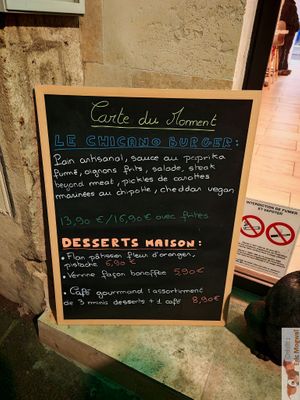 Carte du Moment
LE CHICANO BURGER :
Pain artisanal, sauce au paprika
fumé, oignons frits, salade, steak
beyond meat, pickles de carottes
marinées au chipotle, cheddar vegan
13,90 €/16,90 € avec frites
DESSERTS MAISON :
• Flan pâtissier fleur d'oranger,
pistache 6,90 €
• Verrine façon banoffee 5,90 €
• Café gourmand : assortiment
de 3 minis desserts + 1 café 8,90 €
INTERDICTION DE FUMER
ET VAPOTER